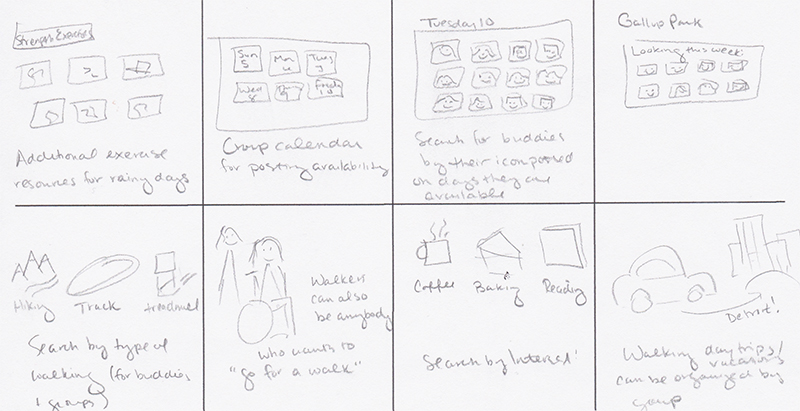 Strength Exercises
Additional exercise
resources for rainy days
Sun
5
Mon
Tues
Wed
8
Group calendar
for posting availability
Tuesday 10
Search for buddies
by their icon posted
on days they are
available
Gallup Park
Looking this week:
Hiking
Track
treadmill
Search by type of
walking (for buddies
groups)
Walkers
can also
be anybody
who wants to
"go for a walk"
Coffee
Baking
Reading
Search by Interest
Detroit!
Walking day trips/
vacations
can be organized by
group